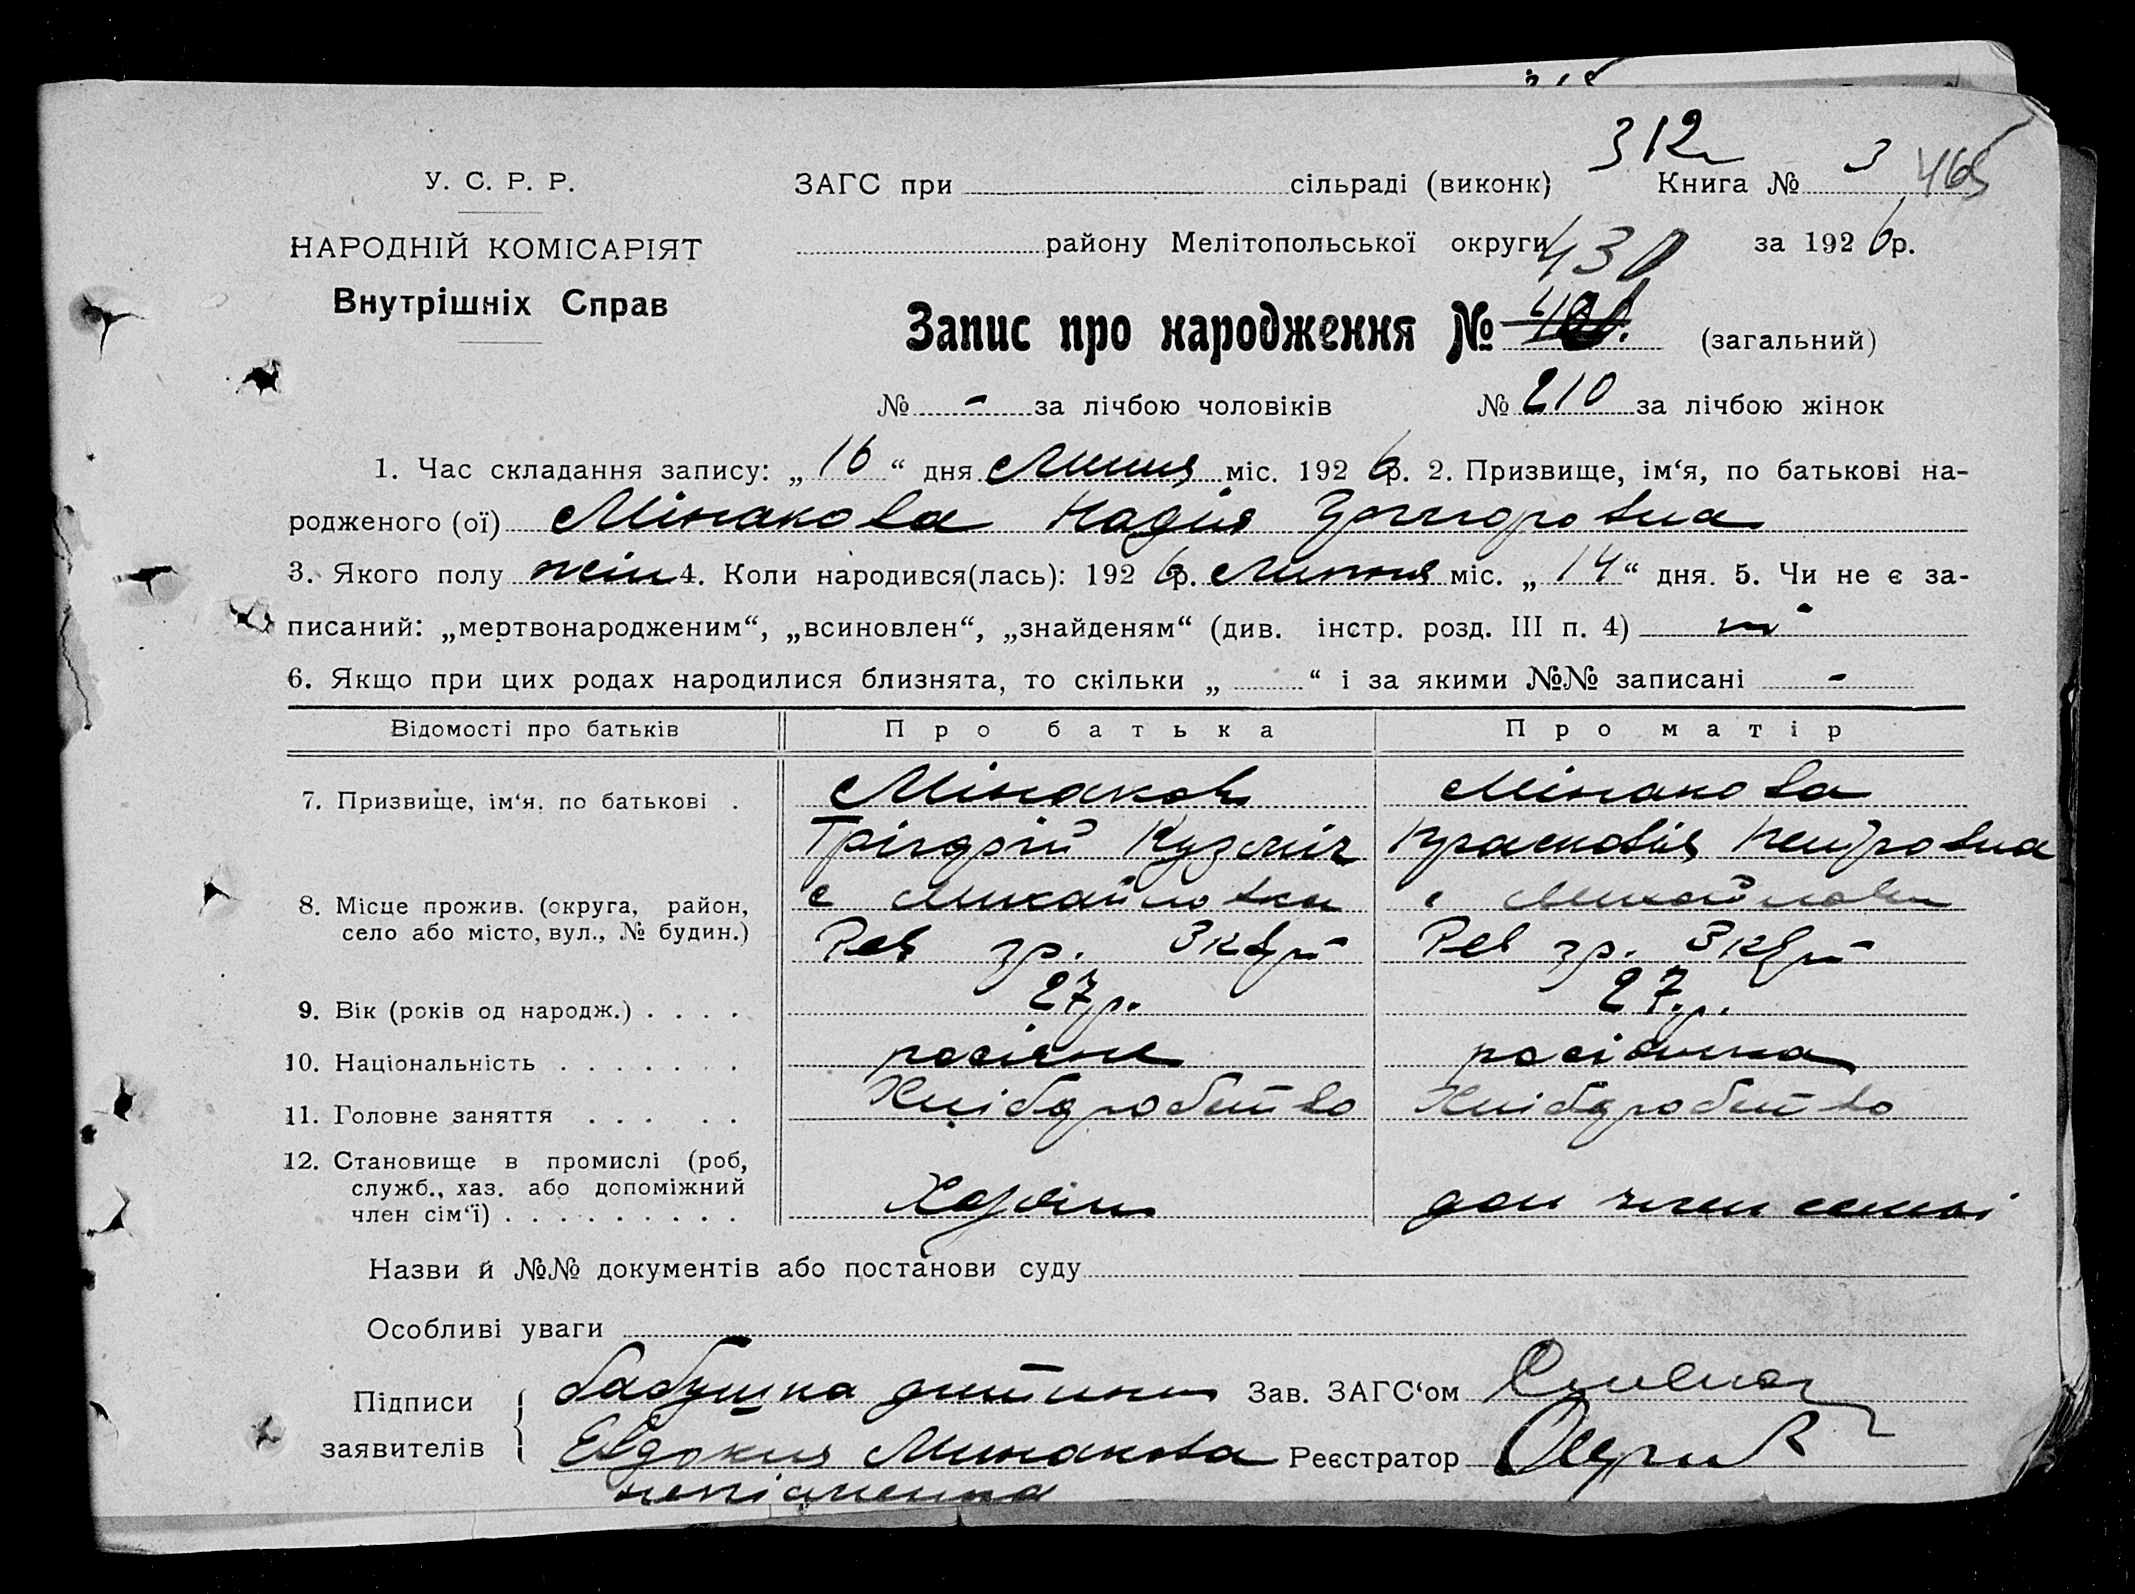 312 3 465
У. С. Р. Р. ЗАГС при сільраді (виконк) Книга №
НАРОДНІЙ КОМІСАРІЯТ району Мелітопольської округи за 1926 р.
430
Внутрішніх Справ
Запис про народження № (загальний)
№ - за лічбою чоловіків № 210 за лічбою жінок
1. Час складання запису: „16“ дня Липня міс. 1926 р. 2. Призвище, ім‘я, по батькові на-
родженого (ої) Мінакова Надія Григоровна
3. Якого полу жін 4. Коли народився(лась): 1926 р. Липня міс. „14“ дня. 5. Чи не є за-
писаний: „мертвонародженим“, „всиновлен“, „знайденям“ (див. інстр. розд. III п. 4) ні
6. Якщо при цих родах народилися близнята, то скільки „ “ і за якими №№ записані -
Відомості про батьків Про батька Про матір
7. Призвище, ім‘я. по батькові . Мінаков Мінакова
Грігорій Кузміч Прасковія Петровна
8. Місце прожив. (округа, район, с Михайловка с Михайловка
село або місто, вул., № будин.) Рев гр. 3 кв Рев гр. 3 кв
9. Вік (років од народж.) . . . . 27 р. 27 р.
10. Національність . . . . . . . росіяне росіянка
11. Головне заняття . . . . . Хлібдробитво Хлібдробитво
12. Становище в промислі (роб,
служб., хаз. або допоміжний
член сім‘ї) . . . . . . . . . Хазяін доп член семьі
Назви й №№ документів або постанови суду
Особливі уваги
Підписи бабушка дитини Зав. ЗАГС‘ом
заявителів Евдокия Минакова Реєстратор
непісменна